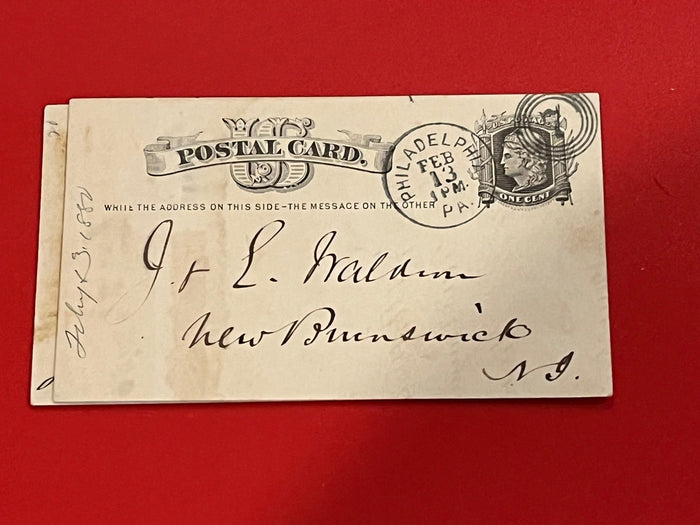 US
POSTAL CARD.
WRITE THE ADDRESS ON THIS SIDE-THE MESSAGE ON THE OTHER
PHILADELPHIA
FEB
13
1PM.
PA.
ONE CENT
J. & L. Waldron
New Brunswick
N J.
Feby 13. 1880